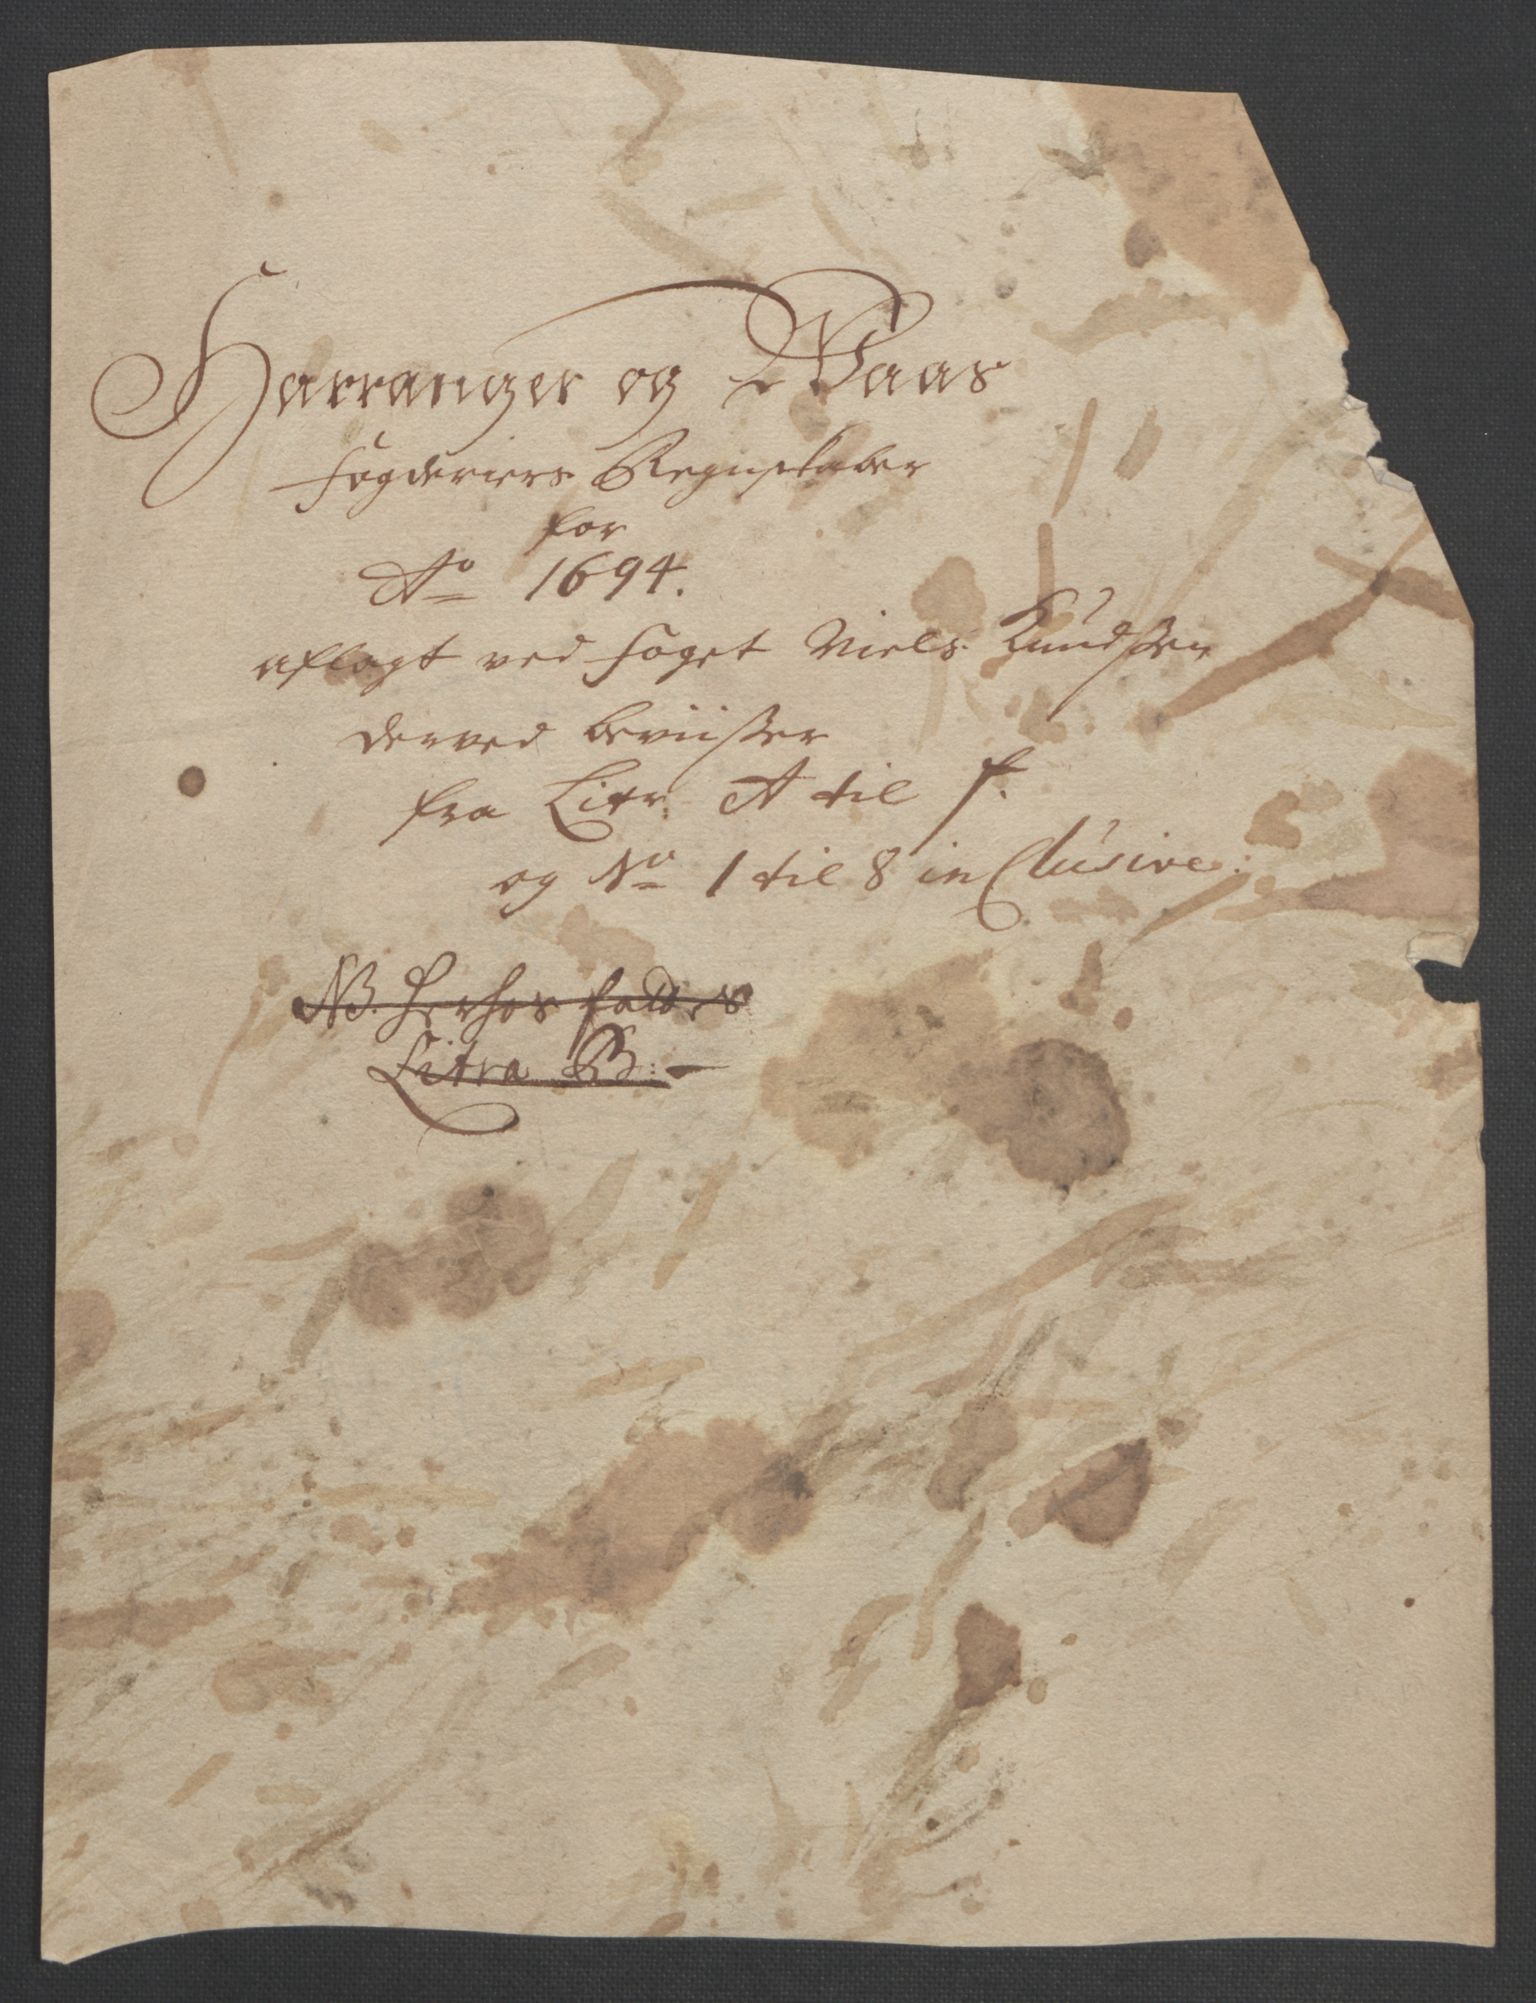 Harranger og Waas
fogderiers Regnskaber
for
Ao 1694.
aflagt ved foget Niels Knudssen
derved beviisser
fra Litr: A til f.
og No 1 til 8 inclusive:
NB. herhos fattes
Litra B: